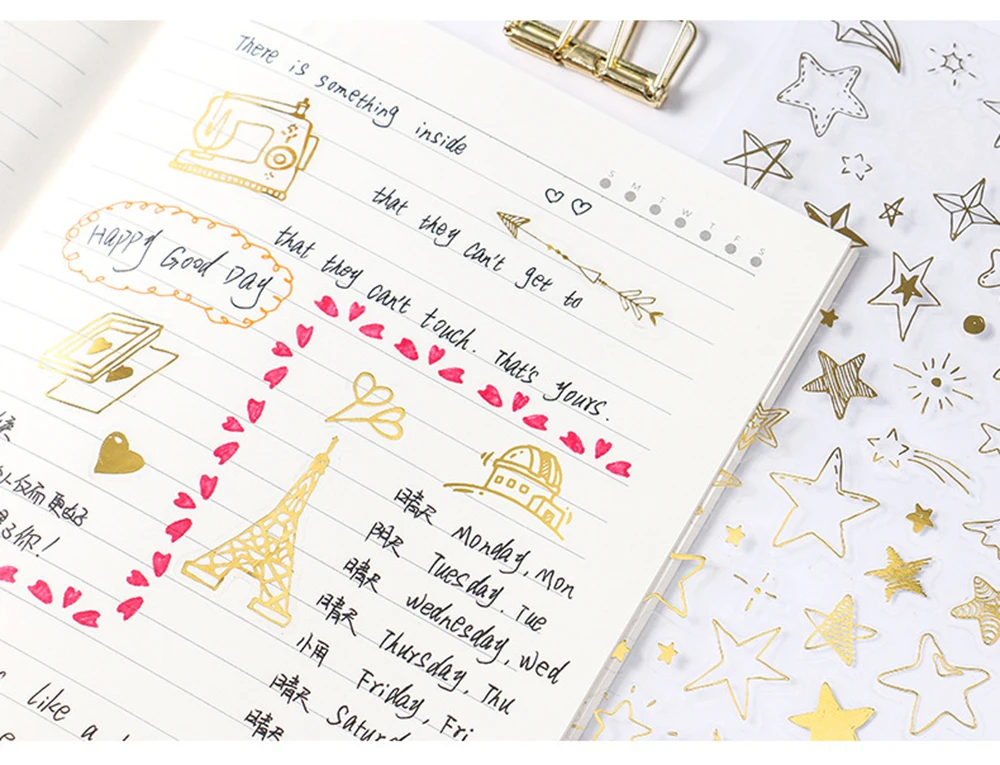 There is something inside
S M T W T F S
that they can't get to
that they can't touch. That's yours.
Happy Good Day
晴天 Monday, Mon
阴天 Tuesday. Tue
晴天 Wednesday, Wed
晴天 Thursday, Thu
小雨 Friday, Fri
晴天 Satur
晴天
仅而更好
了你！
like a